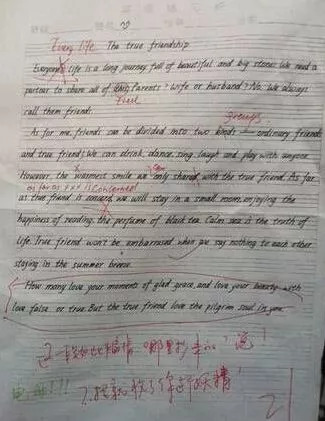 Every life The true friendship
Everyone life is a long journey full of beautiful and big stone. We need a
partner to share all of this. Parents? Wife or husband? No. We always
call them friend.
groups
As for me, friend can be divided into two kinds — ordinary friends
and true friend. We can drink, dance, sing, laugh and play with anyone.
However, the warmest smile we only shared with the true friend. As far
as far as xxx is concerned
as true friend is concern, we will stay in a small room, enjoying the
happiness of reading, the perfume of black tea. Calm sea is the truth of
life. True friend won't be embarrassed when we say nothing to each other
staying in the summer breeze.
How many love your moments of glad grace, and love your beauty with
love false or true. But the true friend love the pilgrim soul in you.
这一段如此煽情 哪里抄来的? 说!
我就收了你这妖精!
21